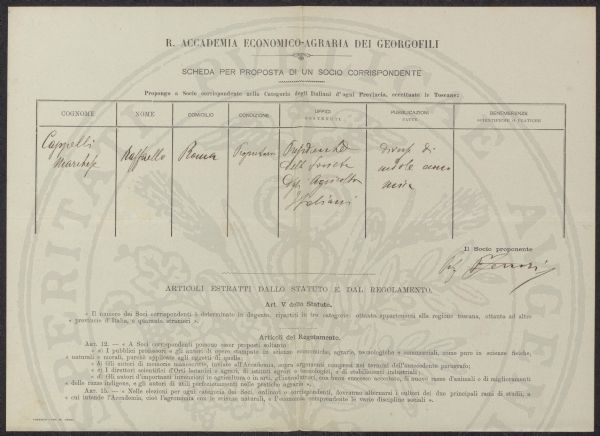 R. ACCADEMIA ECONOMICO-AGRARIA DEI GEORGOFILI
SCHEDA PER PROPOSTA DI UN SOCIO CORRISPONDENTE
Propongo a Socio corrispondente nella Categoria degli Italiani d'ogni Provincia, eccettuate le Toscane:
COGNOME NOME DOMICILIO CONDIZIONE UFFICI SOSTENUTI PUBBLICAZIONI FATTE BENEMERENZE SCIENTIFICHE O PRATICHE
Cappelli Raffaello Roma Presidente diversi di
Marchese dell indole
Agricoltori
Italiani
Il Socio proponente
ARTICOLI ESTRATTI DALLO STATUTO E DAL REGOLAMENTO.
Art. V dello Statuto.
« Il numero dei Soci corrispondenti è determinato in dugento, ripartiti in tre categorie: ottanta appartenenti alla regione toscana, ottanta ad altre
« provincie d'Italia, e quaranta stranieri ».
Articoli del Regolamento.
ART. 12. — « A Soci corrispondenti possono esser proposti soltanto
« a) I pubblici professori e gli autori di opere stampate in scienze economiche, agrarie, tecnologiche e commerciali, come pure in scienze fisiche,
« naturali e morali, purchè applicate agli oggetti di quelle;
« b) Gli autori di memorie manoscritte, inviate all'Accademia, sopra argomenti compresi nei termini dell'antecedente paragrafo;
« c) I direttori scientifici d'Orti botanici e agrari, di istituti agrari e tecnologici, e di stabilimenti industriali;
« d) Gli autori d'importanti invenzioni in agricoltura o in arti, gl'introduttori, con buon successo accertato, di nuove razze d'animali e di miglioramenti
« delle razze indigene, e gli autori di utili perfezionamenti nelle pratiche agrarie ».
ART. 15. — « Nelle elezioni per ogni categoria dei Soci, ordinari o corrispondenti, dovranno alternarsi i cultori dei due principali rami di studii, a
« cui intende l'Accademia, cioè l'agronomia con le scienze naturali, e l'economia comprendente le varie discipline sociali ».